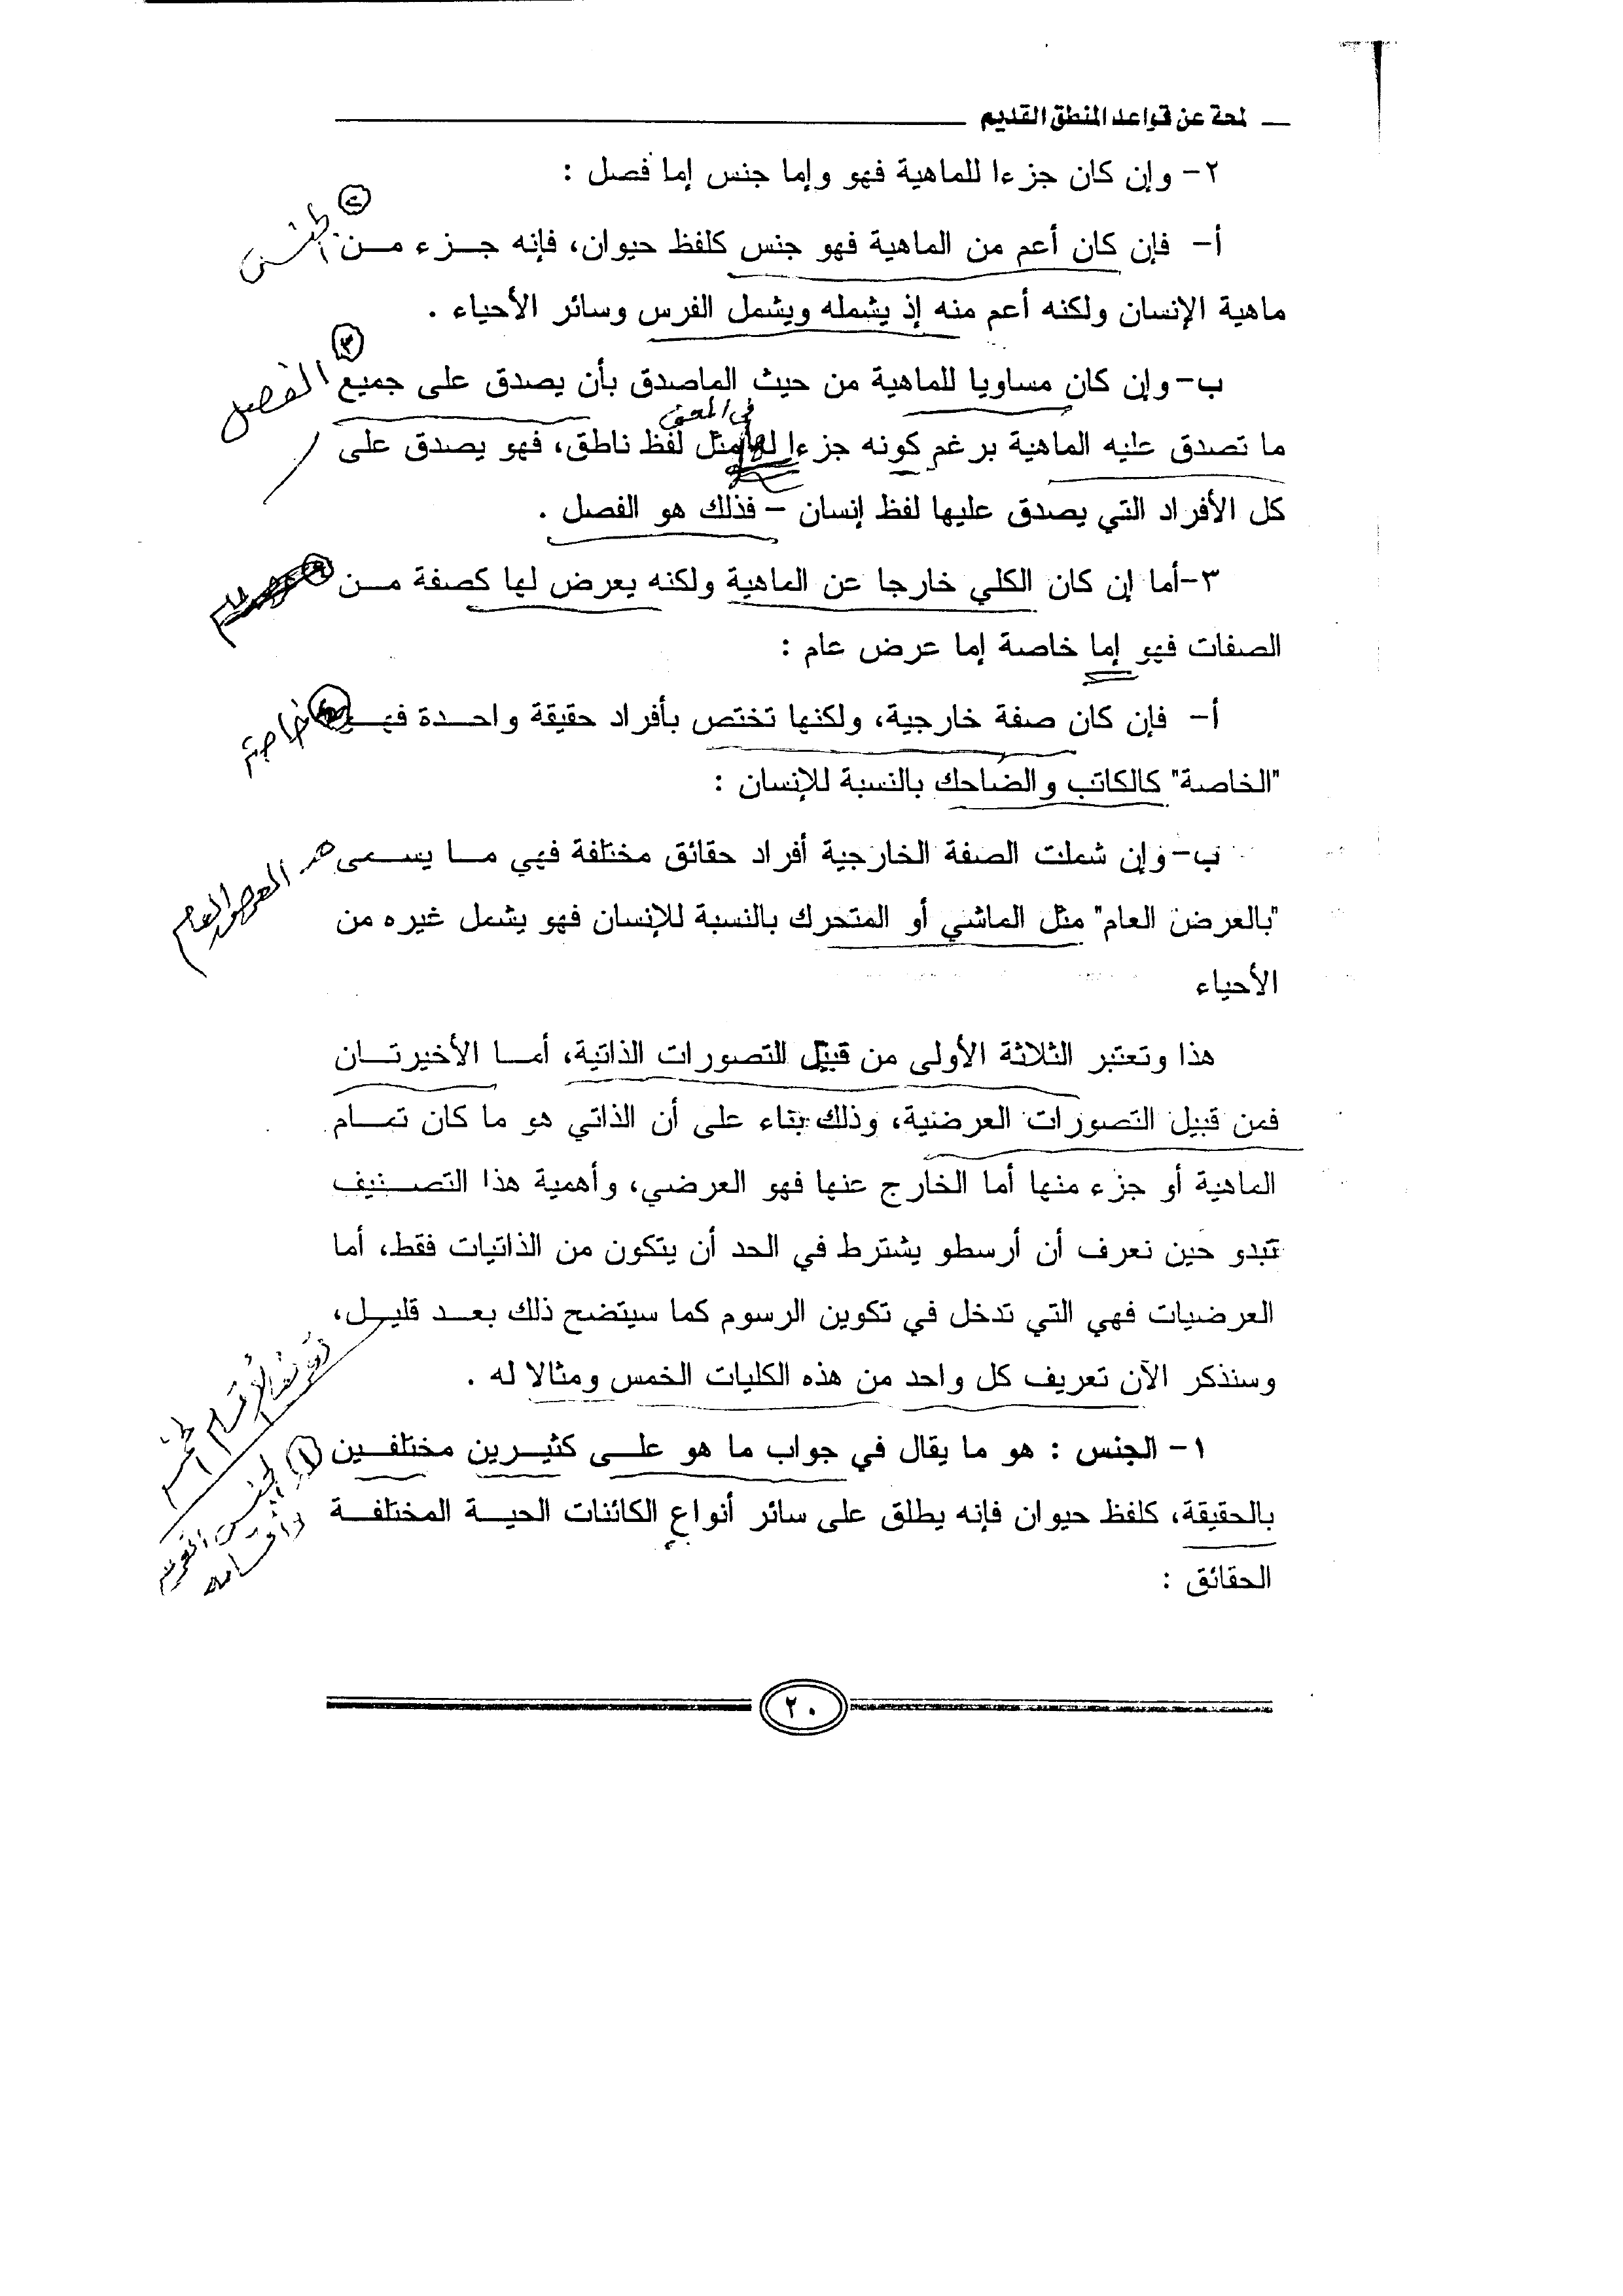 لمحة عن قواعد المنطق القديم
٢- وإن كان جزءا للماهية فهو وإما جنس إما فصل :
٢
الجنس
أ- فإن كان أعم من الماهية فهو جنس كلفظ حيوان، فإنه جزء من
ماهية الإنسان ولكنه أعم منه إذ يشمله ويشمل الفرس وسائر الأحياء .
٣
الفصل
ب- وإن كان مساويا للماهية من حيث الماصدق بأن يصدق على جميع
في المعنى
ما تصدق عليه الماهية برغم كونه جزءا لها مثل لفظ ناطق، فهو يصدق على
كل الأفراد التي يصدق عليها لفظ إنسان – فذلك هو الفصل .
٣- أما إن كان الكلي خارجا عن الماهية ولكنه يعرض لها كصفة من
الصفات فهو إما خاصة إما عرض عام :
خاصة
أ- فإن كان صفة خارجية، ولكنها تختص بأفراد حقيقة واحدة فهي
"الخاصة" كالكاتب والضاحك بالنسبة للإنسان :
العرض العام
ب- وإن شملت الصفة الخارجية أفراد حقائق مختلفة فهي ما يسمى
"بالعرض العام" مثل الماشي أو المتحرك بالنسبة للإنسان فهو يشمل غيره من
الأحياء
هذا وتعتبر الثلاثة الأولى من قبيل التصورات الذاتية، أما الأخيرتان
فمن قبيل التصورات العرضية، وذلك بناء على أن الذاتي هو ما كان تمام
الماهية أو جزء منها أما الخارج عنها فهو العرضي، وأهمية هذا التصنيف
تبدو حين نعرف أن أرسطو يشترط في الحد أن يتكون من الذاتيات فقط، أما
العرضيات فهي التي تدخل في تكوين الرسوم كما سيتضح ذلك بعد قليل،
وسنذكر الآن تعريف كل واحد من هذه الكليات الخمس ومثالا له .
١- الجنس : هو ما يقال في جواب ما هو على كثيرين مختلفين
١
الجنس
وأقسامه
بالحقيقة، كلفظ حيوان فإنه يطلق على سائر أنواع الكائنات الحية المختلفة
الحقائق :
٢٠